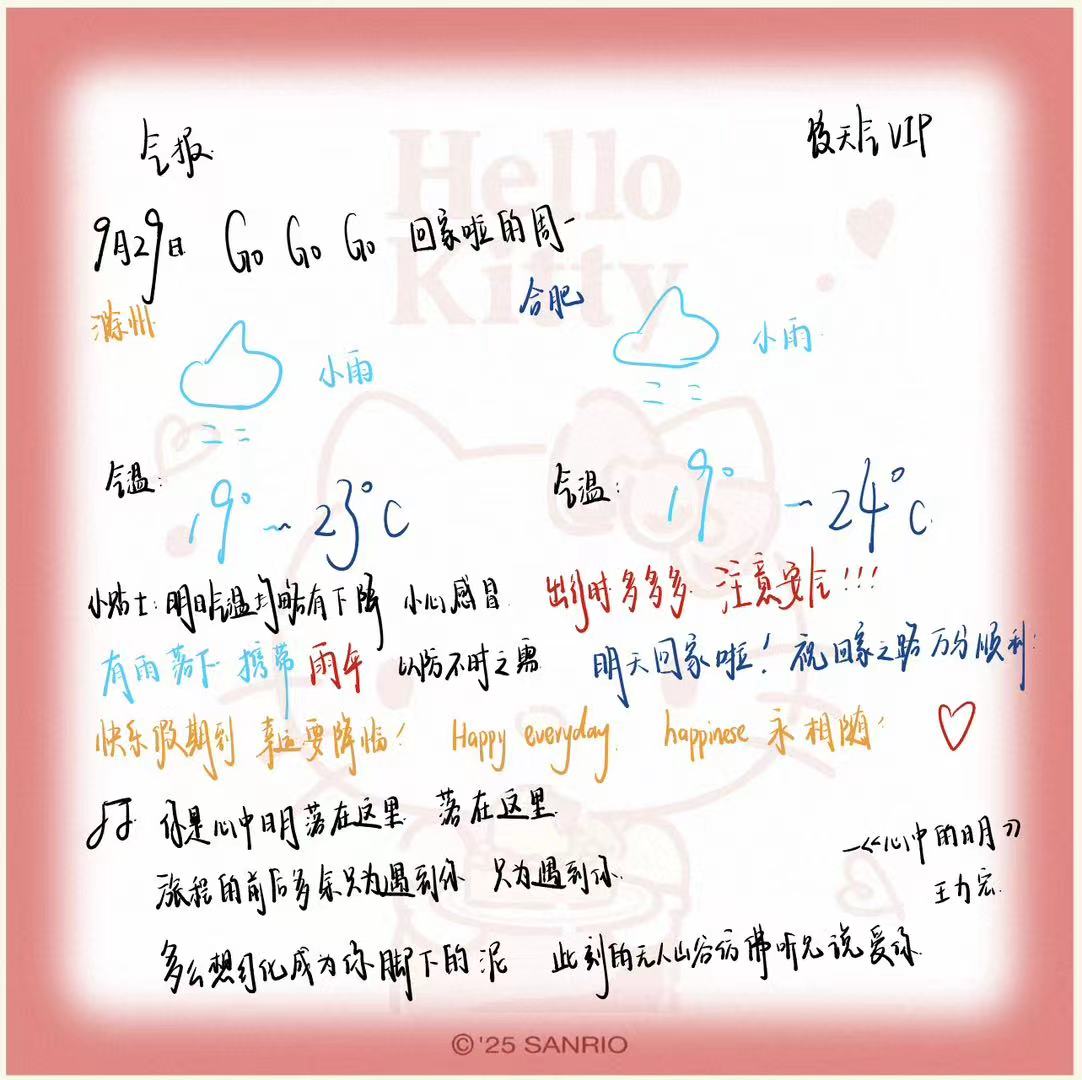 气报
天气VIP
Hello
Kitty
9月29日 Go Go Go 回家啦的周一
滁州
合肥
小雨
小雨
气温:
19°~23°C
气温:
19°~24°C
小贴士:明日气温均略有下降 小心感冒 出行时多多多 注意安全!!!
有雨落下 携带雨伞 以防不时之需 明天回家啦!祝回家之路万分顺利!
快乐假期到 幸运要降临! Happy everyday. happinese 永相随!
你是心中日月落在这里 落在这里
旅程的前后多余只为遇到你 只为遇到你
—《心中的日月》
王力宏
多么想幻化成为你脚下的泥 此刻的无人山谷仿佛听见说爱你
©'25 SANRIO